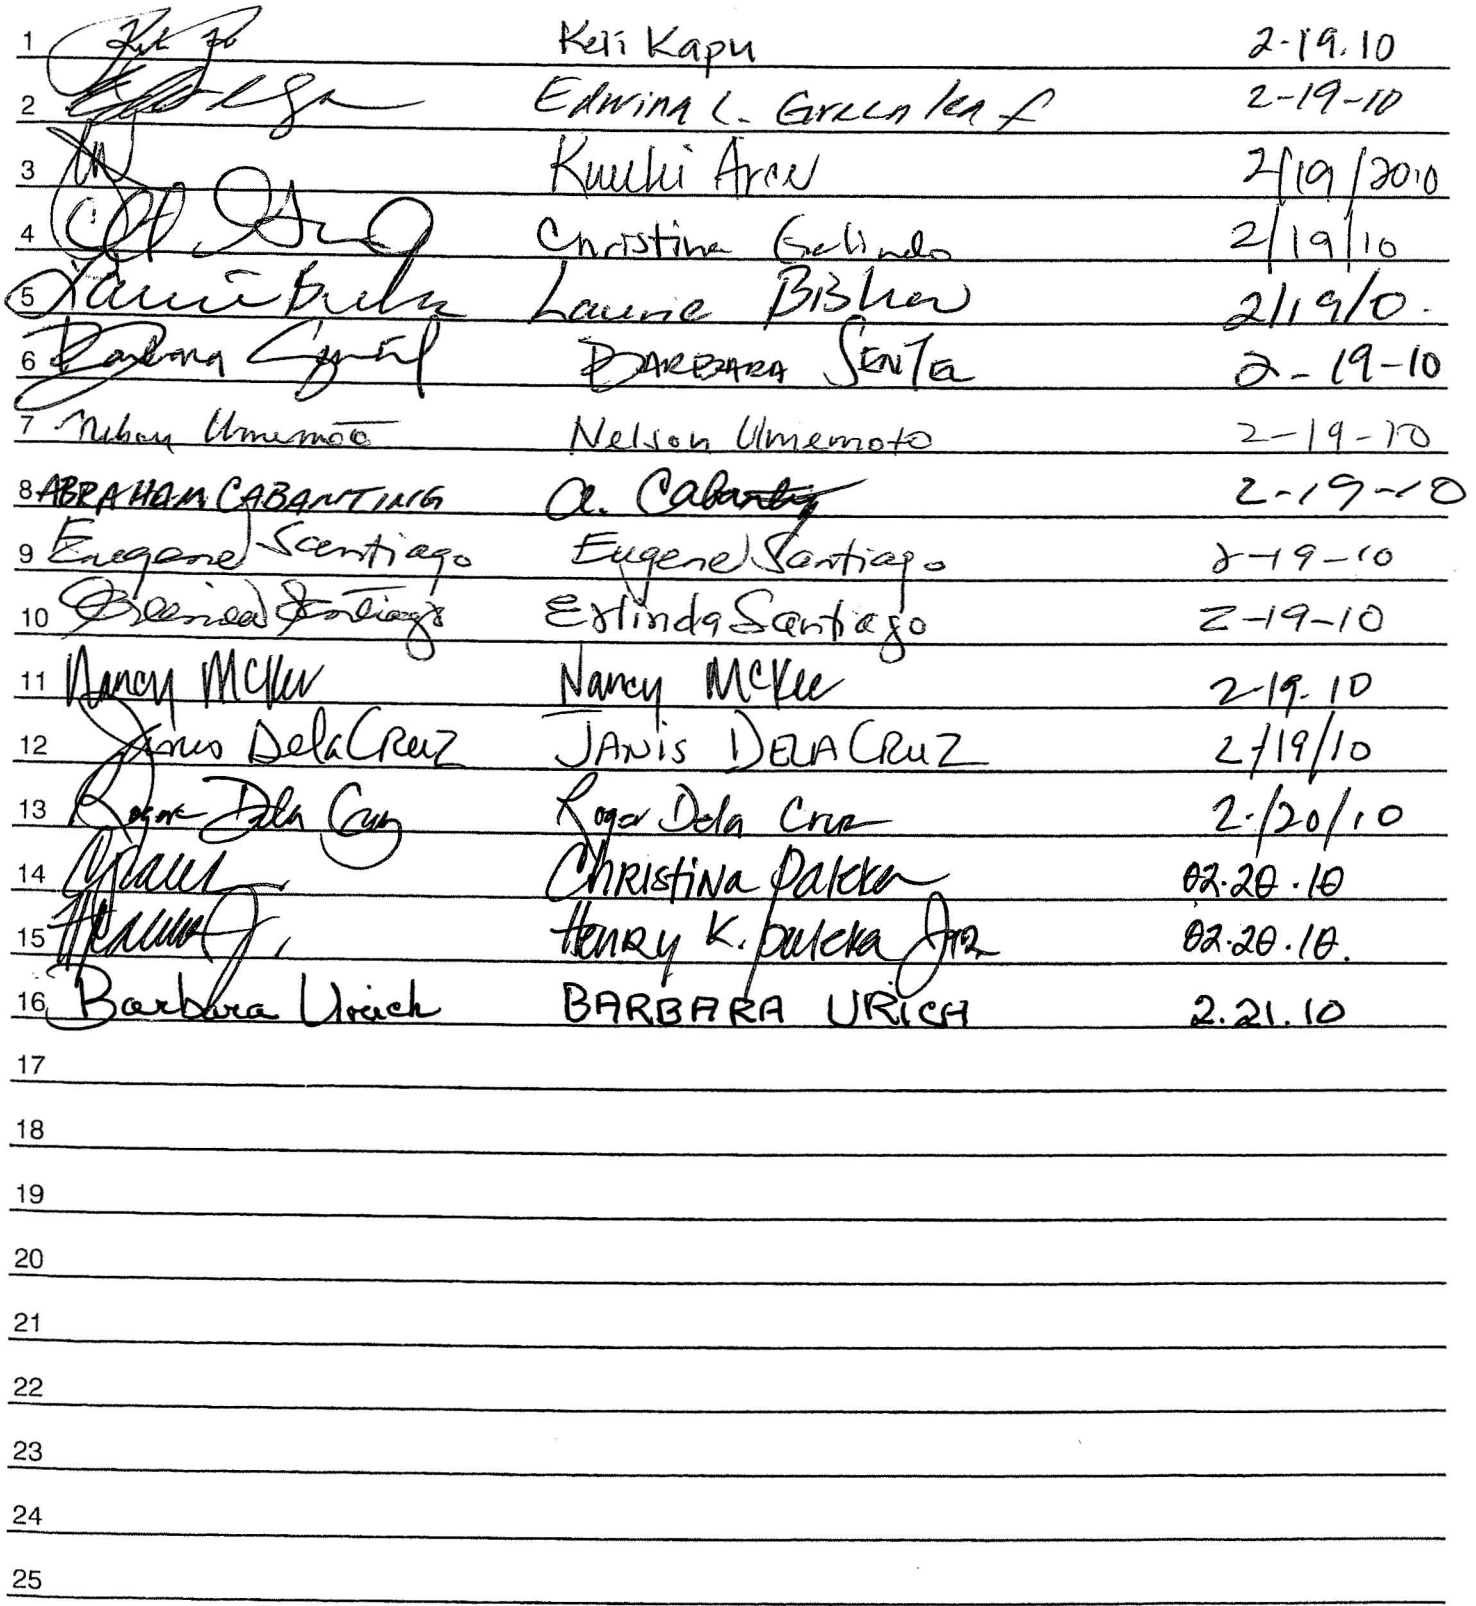 1 Keli Kapu 2-19.10
2 Edwina L. Greenleaf 2-19-10
3 2/19/2010
4 Christina Galindo 2/19/10
5 Laurie Laurie 2/19/0.
6 Barbara BARBARA 2-19-10
7 Nelson Umemoto Nelson Umemoto 2-19-10
8 ABRAHAM CABANTING A. Cabanting 2-19-10
9 Eugene Santiago Eugene Santiago 2-19-10
10 Erlinda Santiago Erlinda Santiago 2-19-10
11 Nancy McKee Nancy McKee 2-19.10
12 Janis DelaCRUZ JANIS DELACRUZ 2/19/10
13 Roger Dela Cruz Roger Dela Cruz 2/20/10
14 CHRISTINA 02.20.10
15 HENRY K. JR 02.20.10.
16 Barbara Urich BARBARA URICH 2.21.10
17
18
19
20
21
22
23
24
25